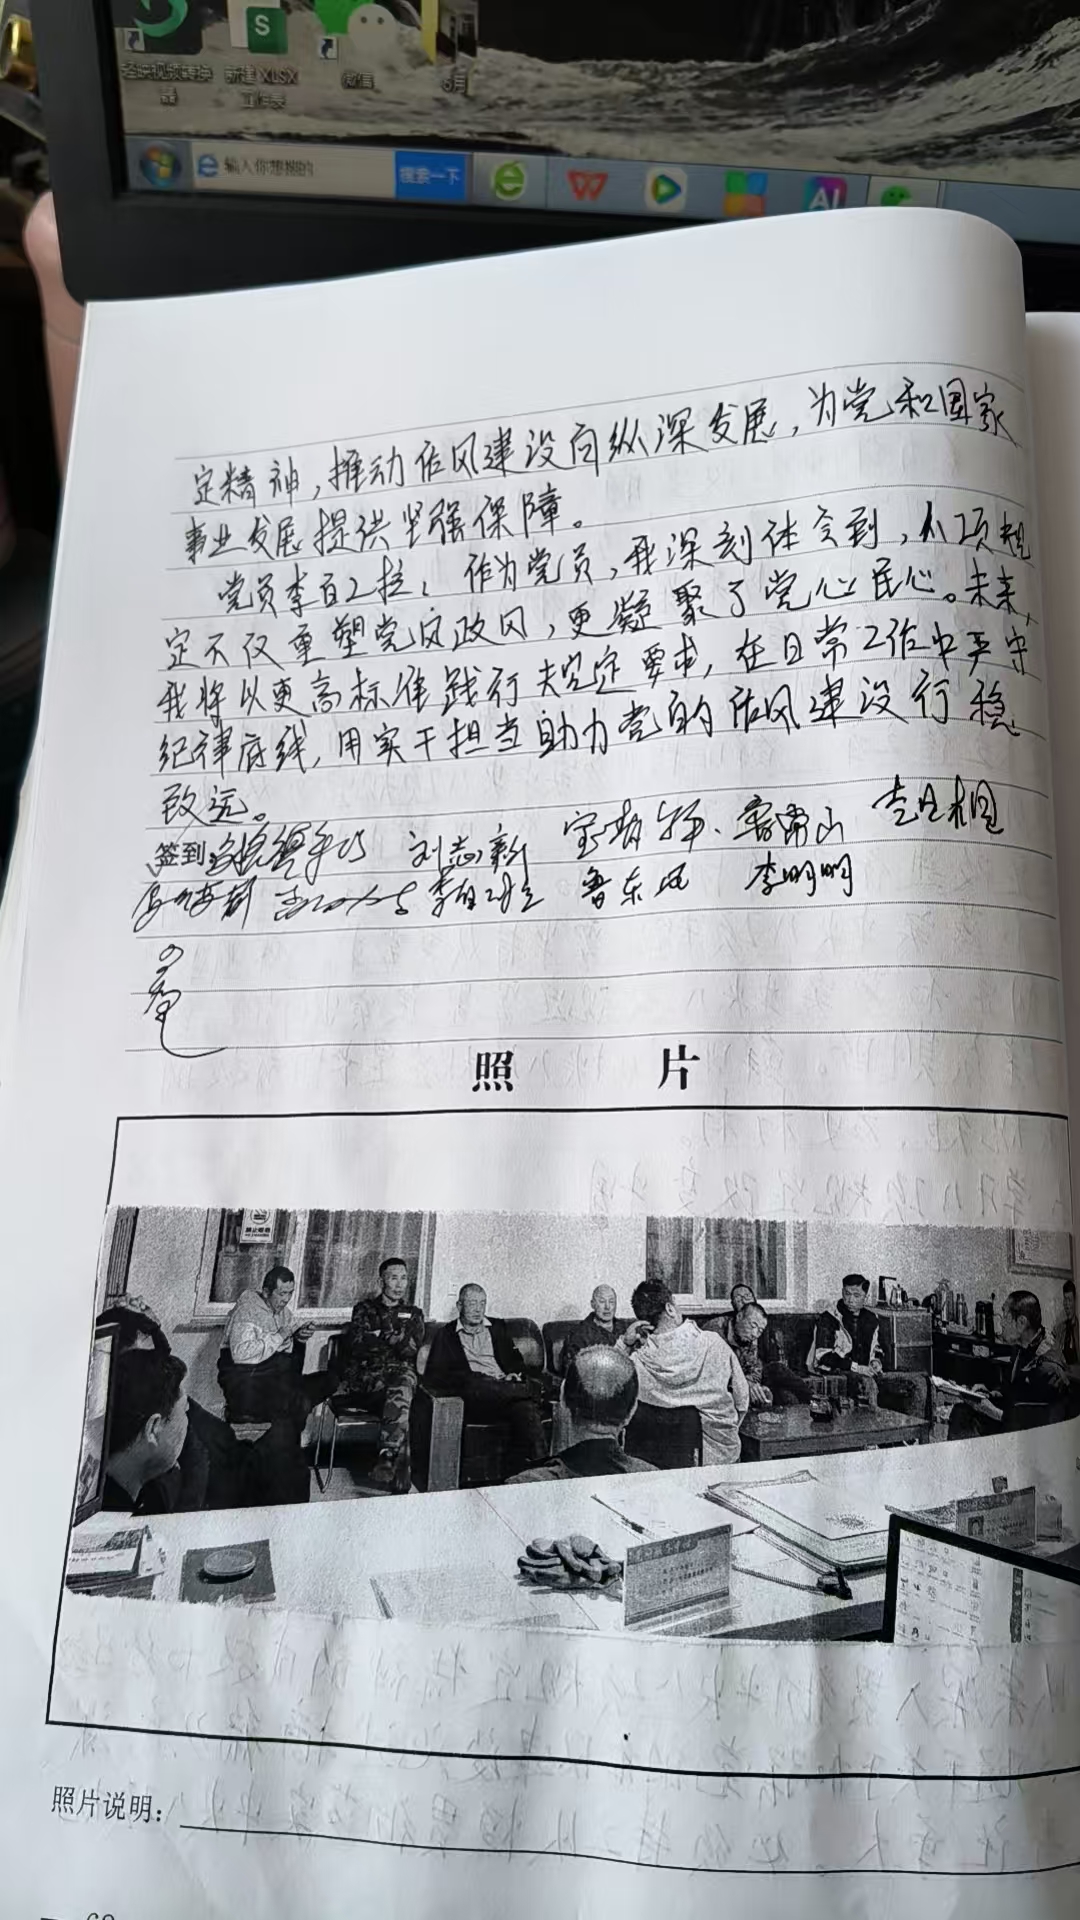 新建 XLSX
工作表
微信
6月
输入你想搜的
搜索一下
AI
定精神，推动作风建设向纵深发展，为党和国家
事业发展提供坚强保障。
党员李百工拉：作为党员，我深刻体会到，八项规
定不仅重塑党风政风，更凝聚了党心民心。未来，
我将以更高标准践行规定要求，在日常工作中严守
纪律底线，用实干担当助力党的作风建设行稳
致远。
签到: 刘志新
鲁东风 李明明
照 片
照片说明：